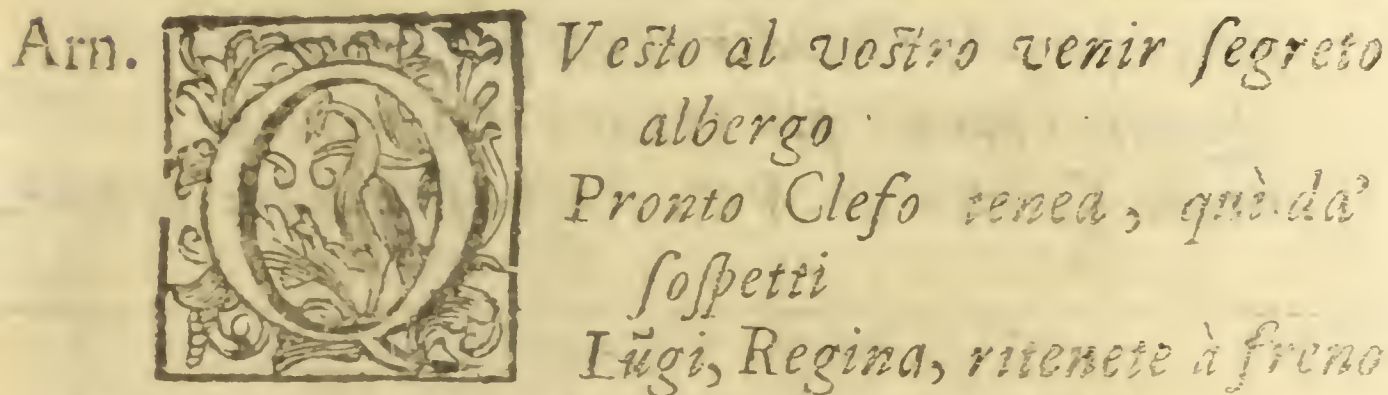 Arn. QVesto al vostro venir ſegreto
albergo
Pronto Clefo tenea, quì da'
ſoſpetti
Lũgi, Regina, ritenete à freno